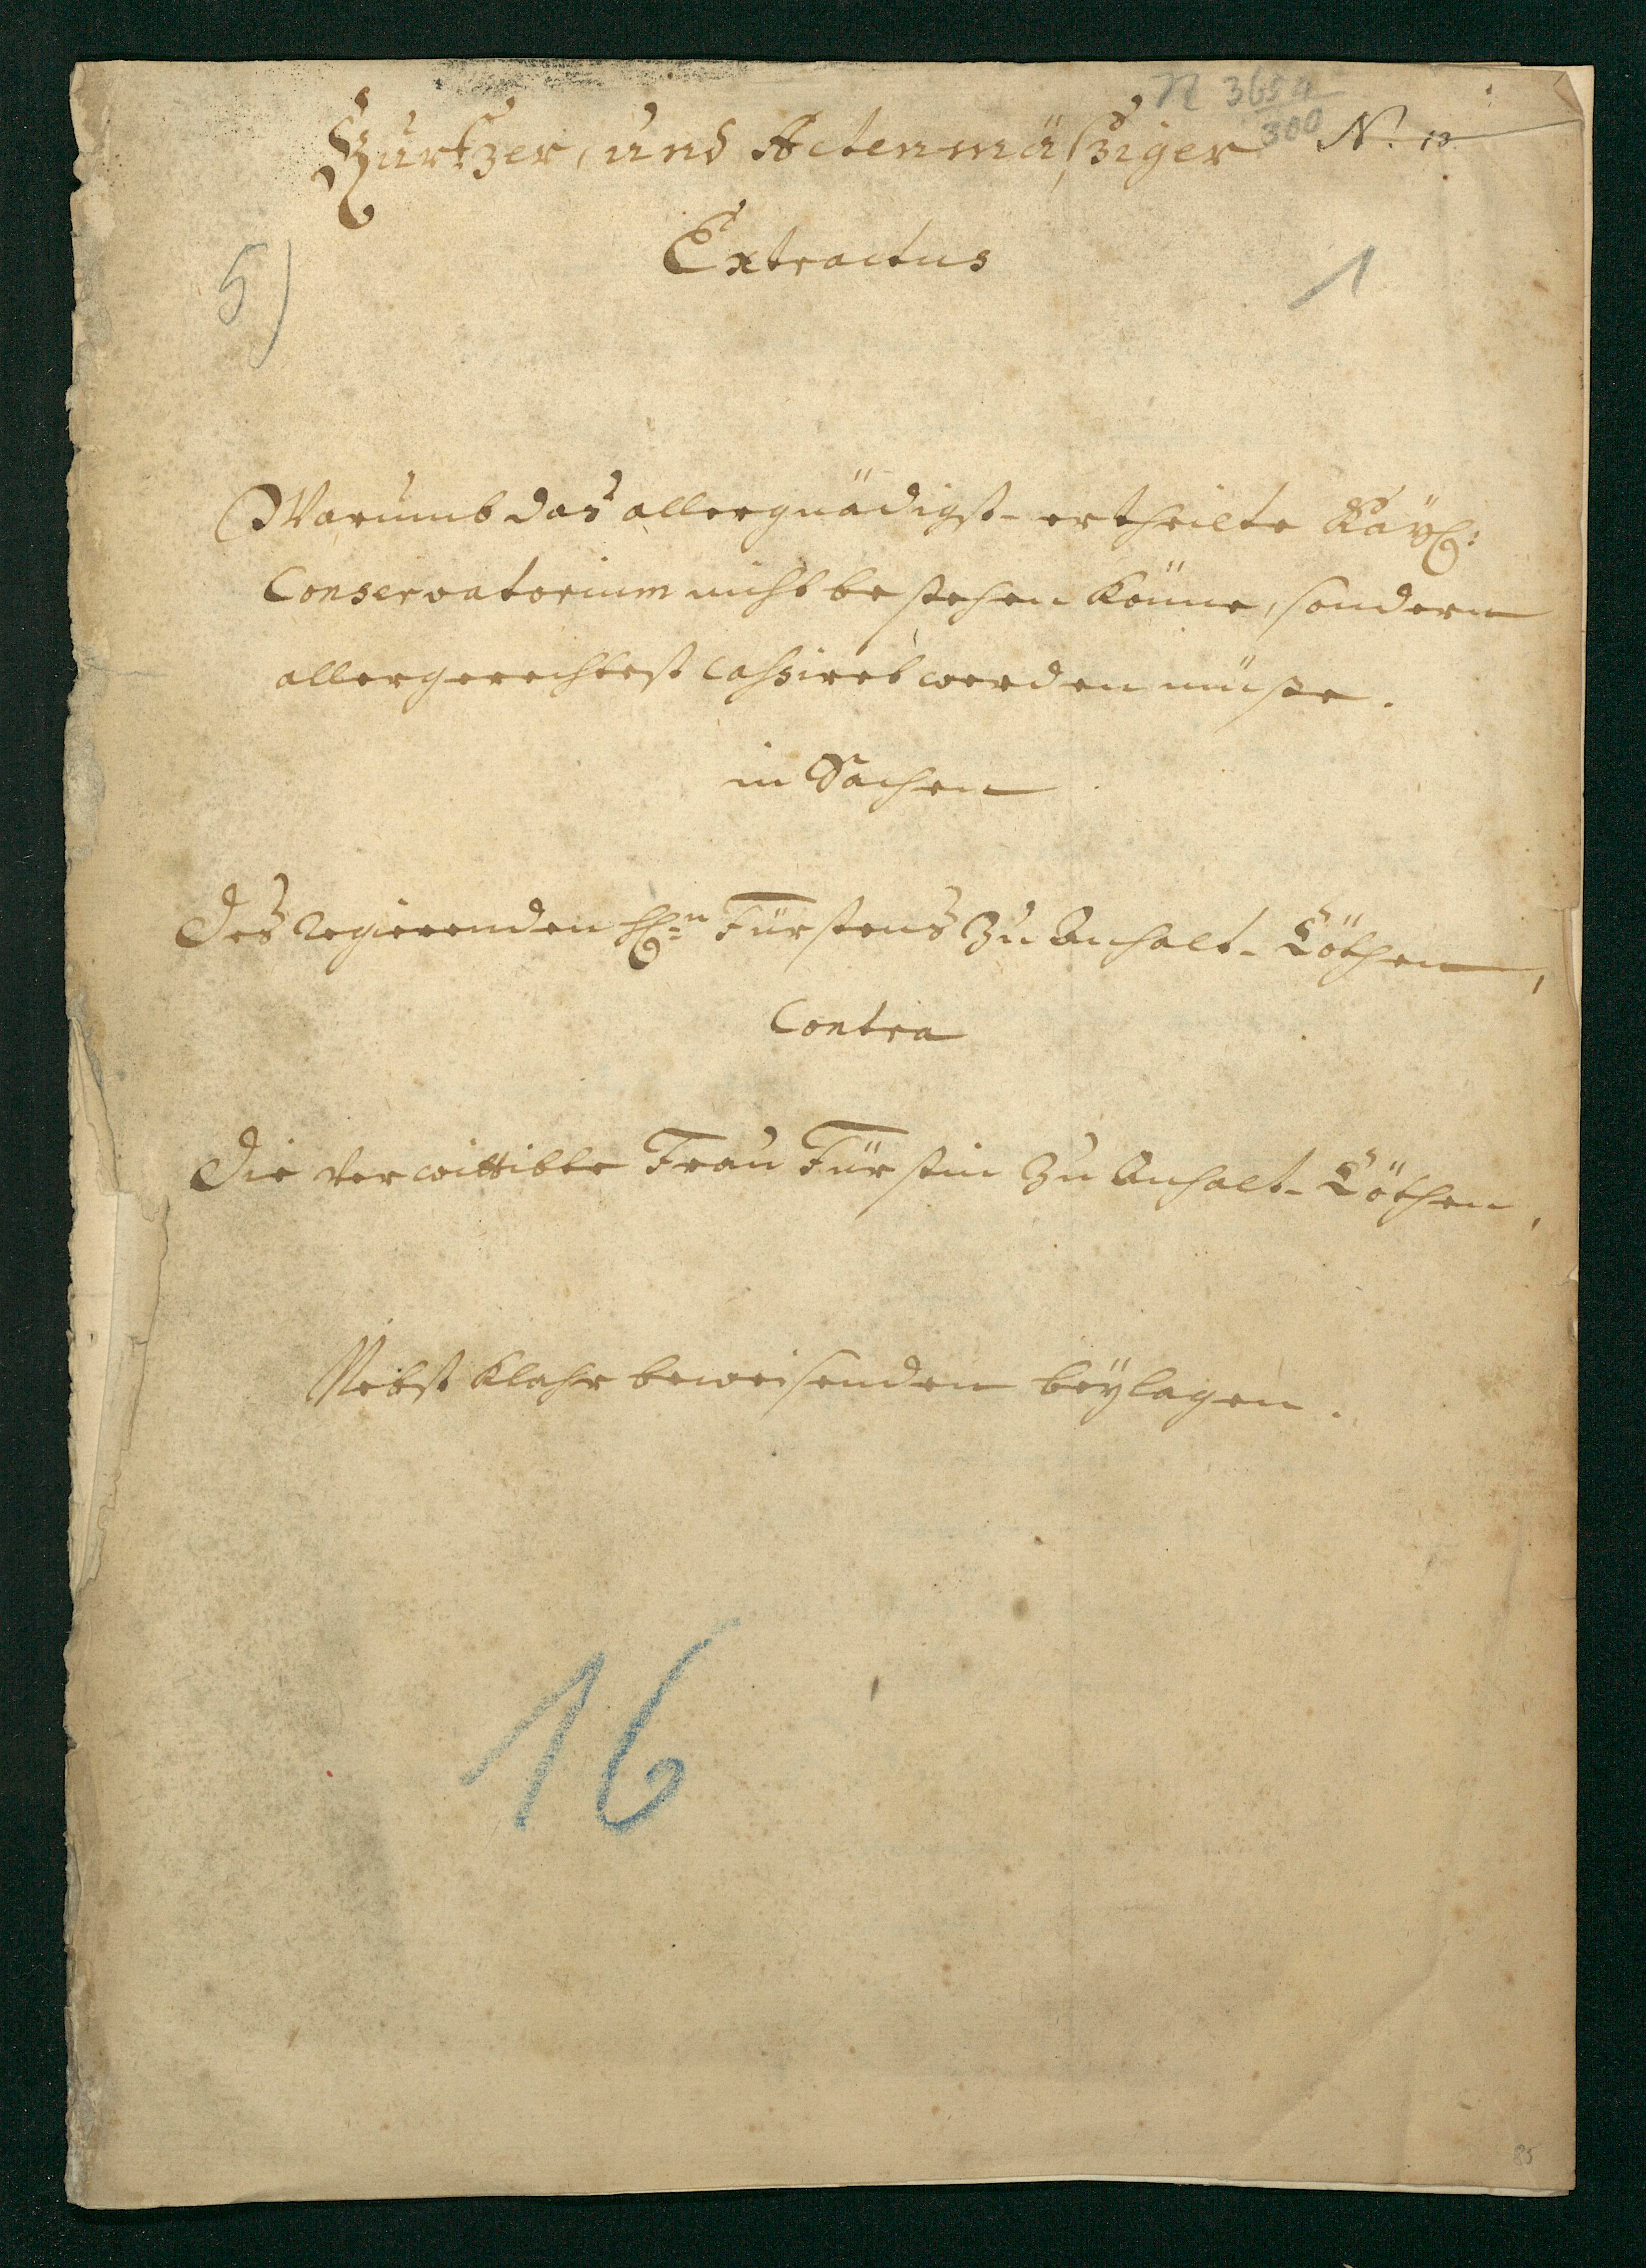 N 3654
300
N. 10.
Kurtzer, und Actenmäßziger
Extractus
5)
1
Warumb das allergnädigst- ertheilte Kayßl:
Conservatorium nicht bestehen könne, sondern
allergerechtest cassiret werden müsse.
in Sachen
Des regierenden H:n Fürstens zu Anhalt-Cöthen,
Contra
Die verwittibte Frau Fürstin zu Anhalt-Cöthen,
Nebst klahr beweisenden beÿlagen.
16
85